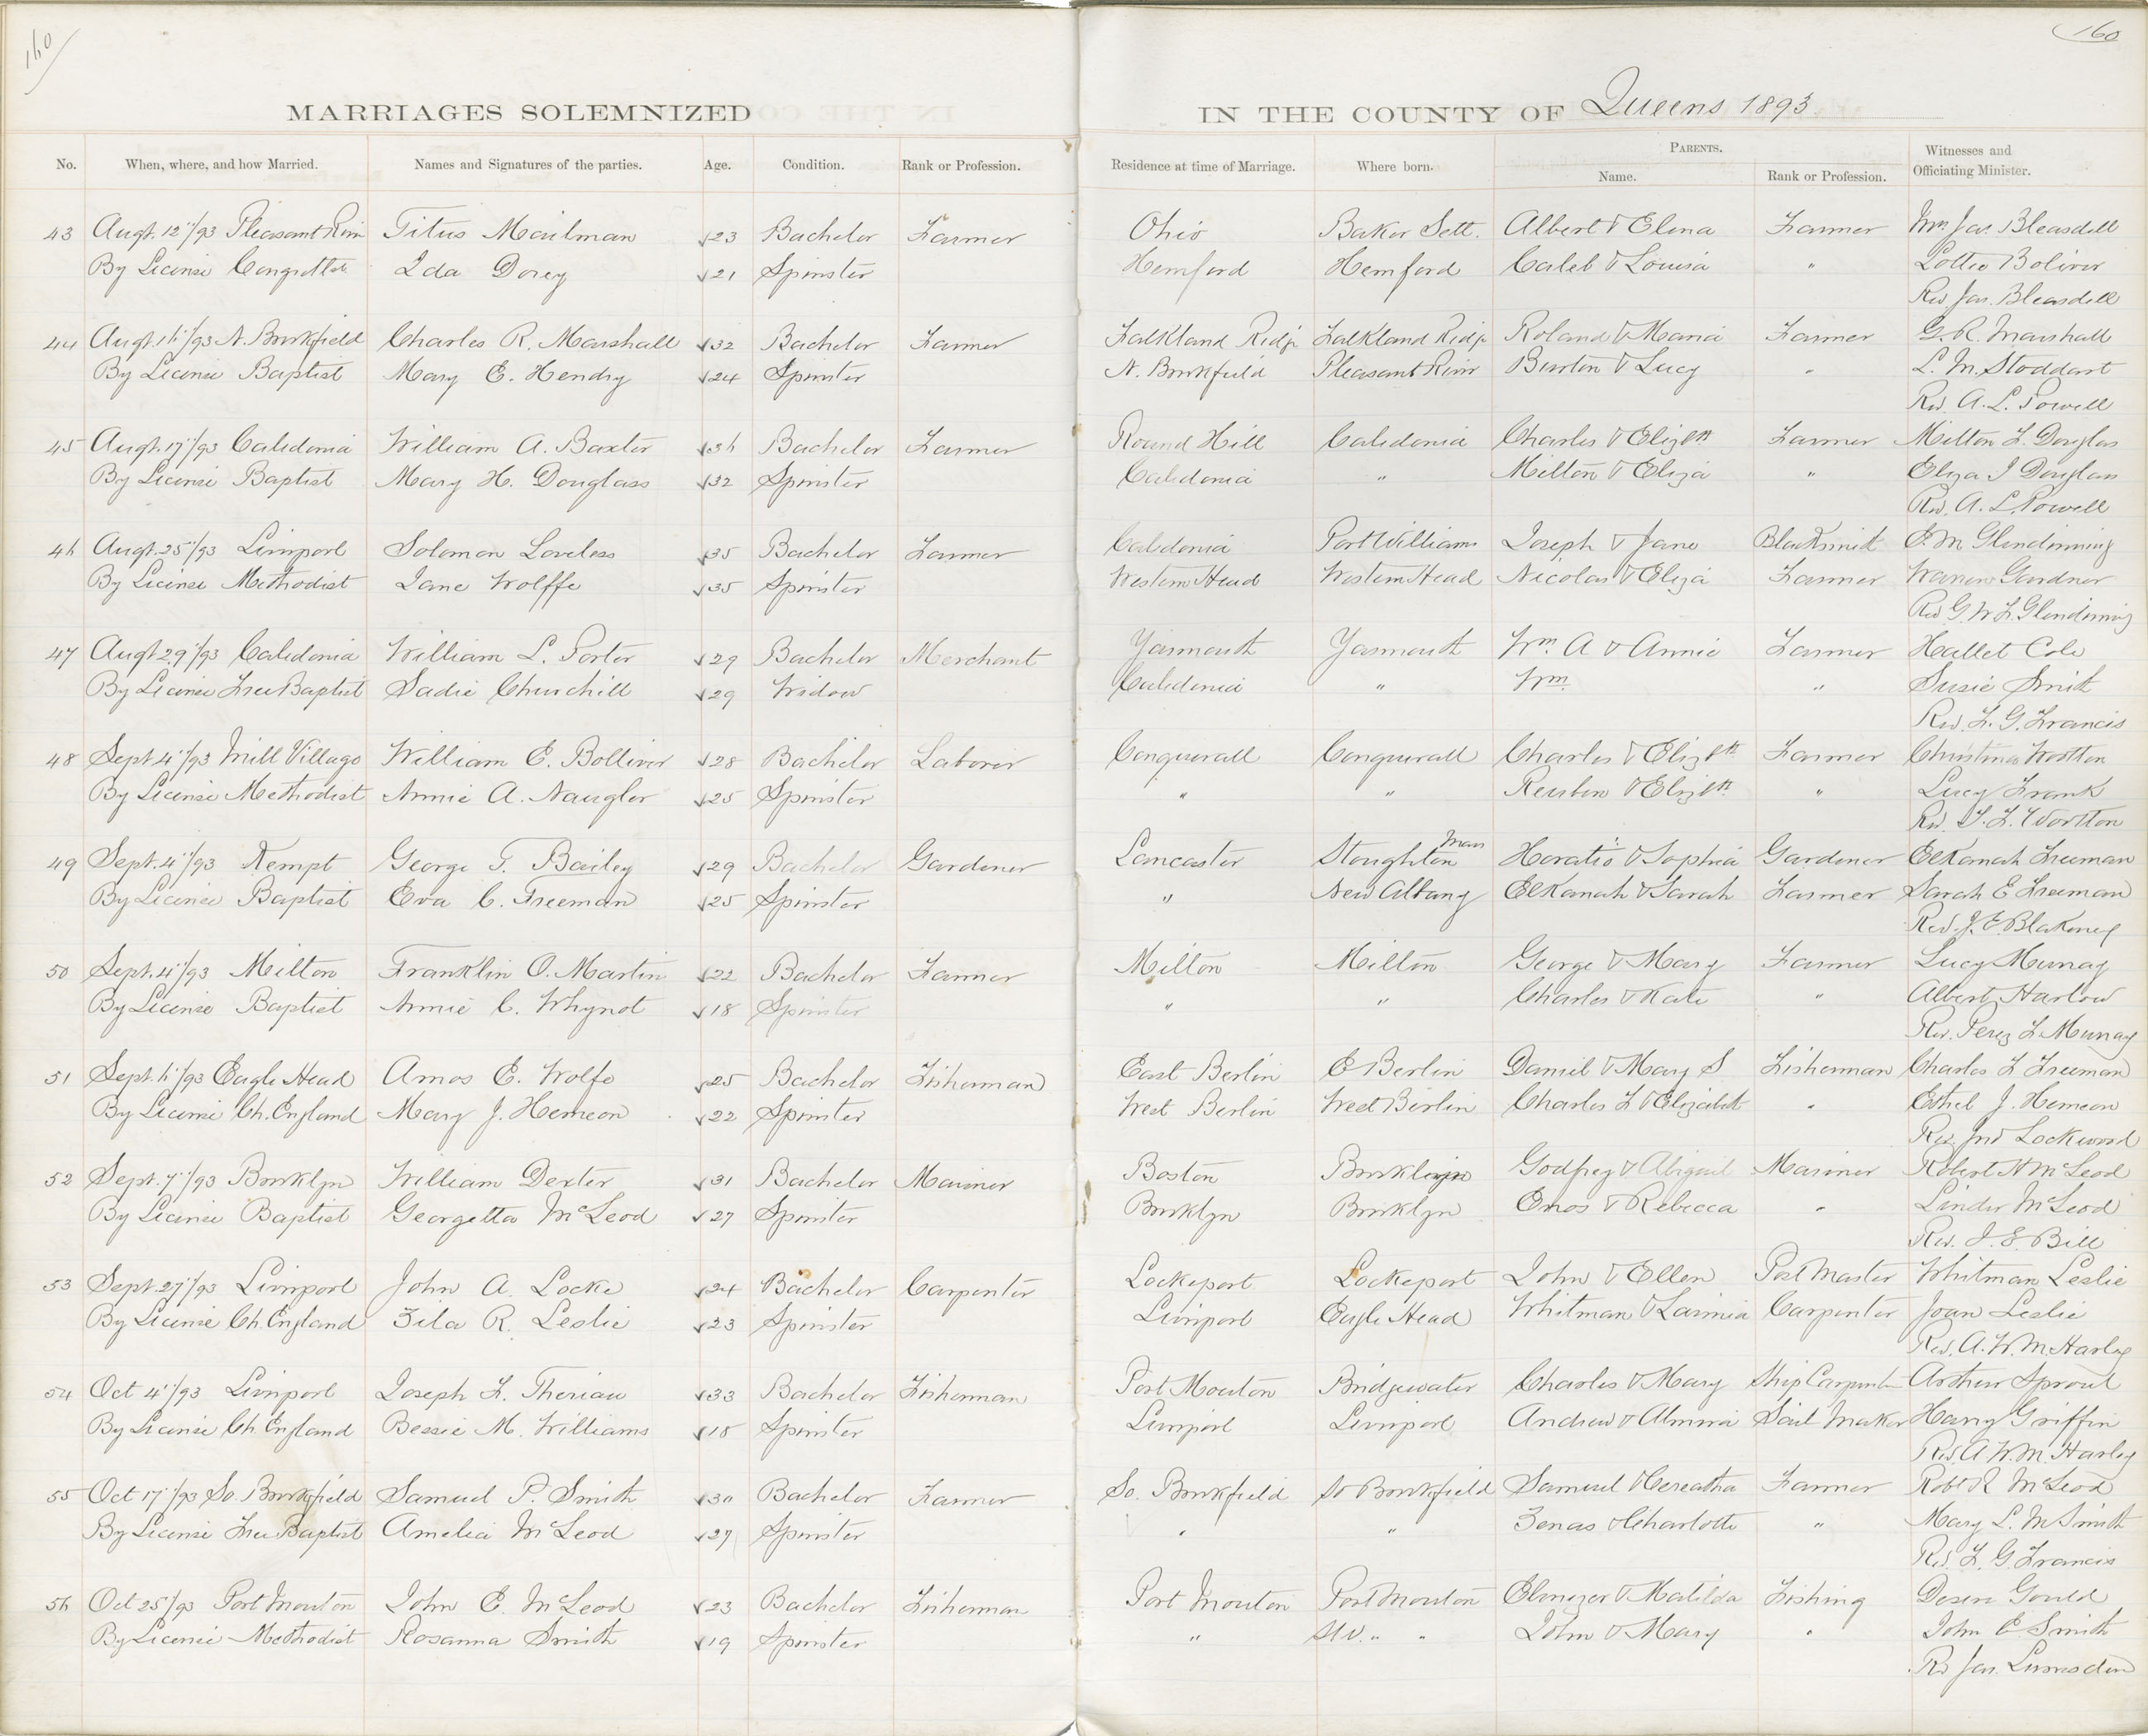 160
160
MARRIAGES SOLEMNIZED IN THE COUNTY OF Queens 1893
No. When, where, and how Married. Names and Signatures of the parties. Age. Condition. Rank or Profession. Residence at time of Marriage. Where born. PARENTS. Name. Rank or Profession. Witnesses and Officiating Minister.
43 Augt. 12"/93 Pleasant River Titus Mailman 23 Bachelor Farmer Ohio Baker Sett. Albert & Elena Farmer Mrs Jas. Bleasdell
By License Ida Dorey 21 Spinster Hemford Hemford Caleb & Louisa " Lottie Boliver
Rev Jas. Bleasdell
44 Augt. 16"/93 N. Brookfield Charles R. Marshall 32 Bachelor Farmer Falkland Ridge Falkland Ridge Roland & Maria Farmer G. R. Marshall
By License Baptist Mary E. Hendry 24 Spinster N. Brookfield Pleasant River Burton & Lucy " L. M. Stoddart
Rev. A. L. Powell
45 Augt. 17"/93 Caledonia William A. Baxter 36 Bachelor Farmer Round Hill Caledonia Charles & Elizth Farmer Milton F. Douglas
By License Baptist Mary H. Douglass 32 Spinster Caledonia " Milton & Eliza " Eliza J Douglas
Rev. A. L. Powell
46 Augt. 25"/93 Liverpool Solomon Loveless 35 Bachelor Farmer Caledonia Port Williams Joseph & Jane Blacksmith E. M Glendinning
By License Methodist Jane Wolffe 35 Spinster Western Head Western Head Nicolas & Eliza Farmer Warren Gardner
Rev G W F. Glendinning
47 Augt 29"/93 Caledonia William L. Porter 29 Bachelor Merchant Yarmouth Yarmouth Wm. A & Annie Farmer Hallet Cole
By License Free Baptist Sadie Churchill 29 Widow Caledonia " Wm " Susie Smith
Rev. F. G. Francis
48 Sept 4"/93 Mill Village William E. Bolliver 28 Bachelor Laborer Conquerall Conquerall Charles & Elizth Farmer Christina Wootton
By License Methodist Annie A. Naugler 25 Spinster " " Reuben & Elizth " Lucy Frank
Rev. F. F. Wootton
49 Sept. 4"/93 Kempt George T. Bailey 29 Bachelor Gardener Lancaster Stoughton Mass Horatio & Sophia Gardener Elkanah Freeman
By License Baptist Eva C. Freeman 25 Spinster " New Albany Elkanah & Sarah Farmer Sarah E Freeman
Rev. J. E. Blakeney
50 Sept. 4"/93 Milton Franklin O. Martin 22 Bachelor Farmer Milton Milton George & Mary Farmer Lucy Murray
By License Baptist Annie C. Whynot 18 Spinster " " Charles & Kate " Albert Harlow
Rev. Perez F. Murray
51 Sept. 6"/93 Eagle Head Amos E. Wolfe 25 Bachelor Fisherman East Berlin E Berlin Daniel & Mary S Fisherman Charles F Freeman
By License Ch. England Mary J. Hemeon 22 Spinster West Berlin West Berlin Charles F & Elizabeth " Ethel J. Hemeon
Rev. Jno Lockward
52 Sept. 7"/93 Brooklyn William Dexter 31 Bachelor Mariner Boston Brooklyn Godfrey & Abigail Mariner Robert H McLeod
By License Baptist Georgetta McLeod 27 Spinster Brooklyn Brooklyn Enos & Rebecca " Linder McLeod
Rev. I. E. Bill
53 Sept. 27"/93 Liverpool John A. Locke 24 Bachelor Carpenter Lockeport Lockeport John & Ellen Post Master Whitman Leslie
By License Ch. England Zila R. Leslie 23 Spinster Liverpool Eagle Head Whitman & Carpenter Joan Leslie
Rev. A. W. M. Harley
54 Oct 4"/93 Liverpool Joseph F. Theriau 33 Bachelor Fisherman Port Mouton Bridgewater Charles & Mary Ship Carpenter Arthur Sproul
By License Ch England Bessie M. Williams 18 Spinster Liverpool Liverpool Andrew & Almira Sail Maker Harry Griffin
Rev. A. W. M. Harley
55 Oct 17"/93 So. Brookfield Samuel P. Smith 30 Bachelor Farmer So. Brookfield So Brookfield Samuel & Cereatha Farmer Robt R McLeod
By License Free Baptist Amelia McLeod 27 Spinster " " Zenas & Charlotte " Mary L. M Smith
Rev. F. G. Francis
56 Oct 25"/93 Port Mouton John E. McLeod 23 Bachelor Fisherman Port Mouton Port Mouton Ebenezer & Matilda Fishing Gould
By License Methodist Rosanna Smith 19 Spinster " " " John & Mary " John E Smith
Rev Jas. Lumsden